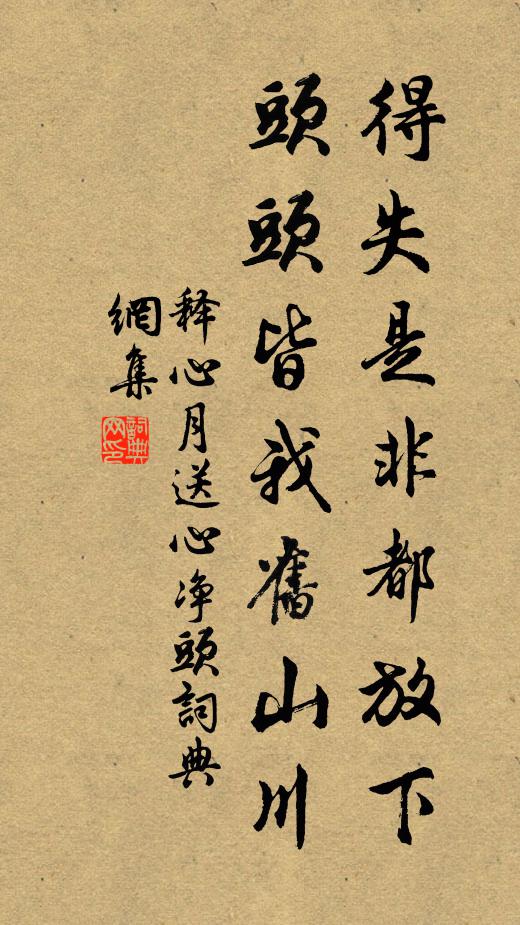 得失是非都放下
頭頭皆我舊山川
释心月送心净頭詞典
網集
詞典
网印